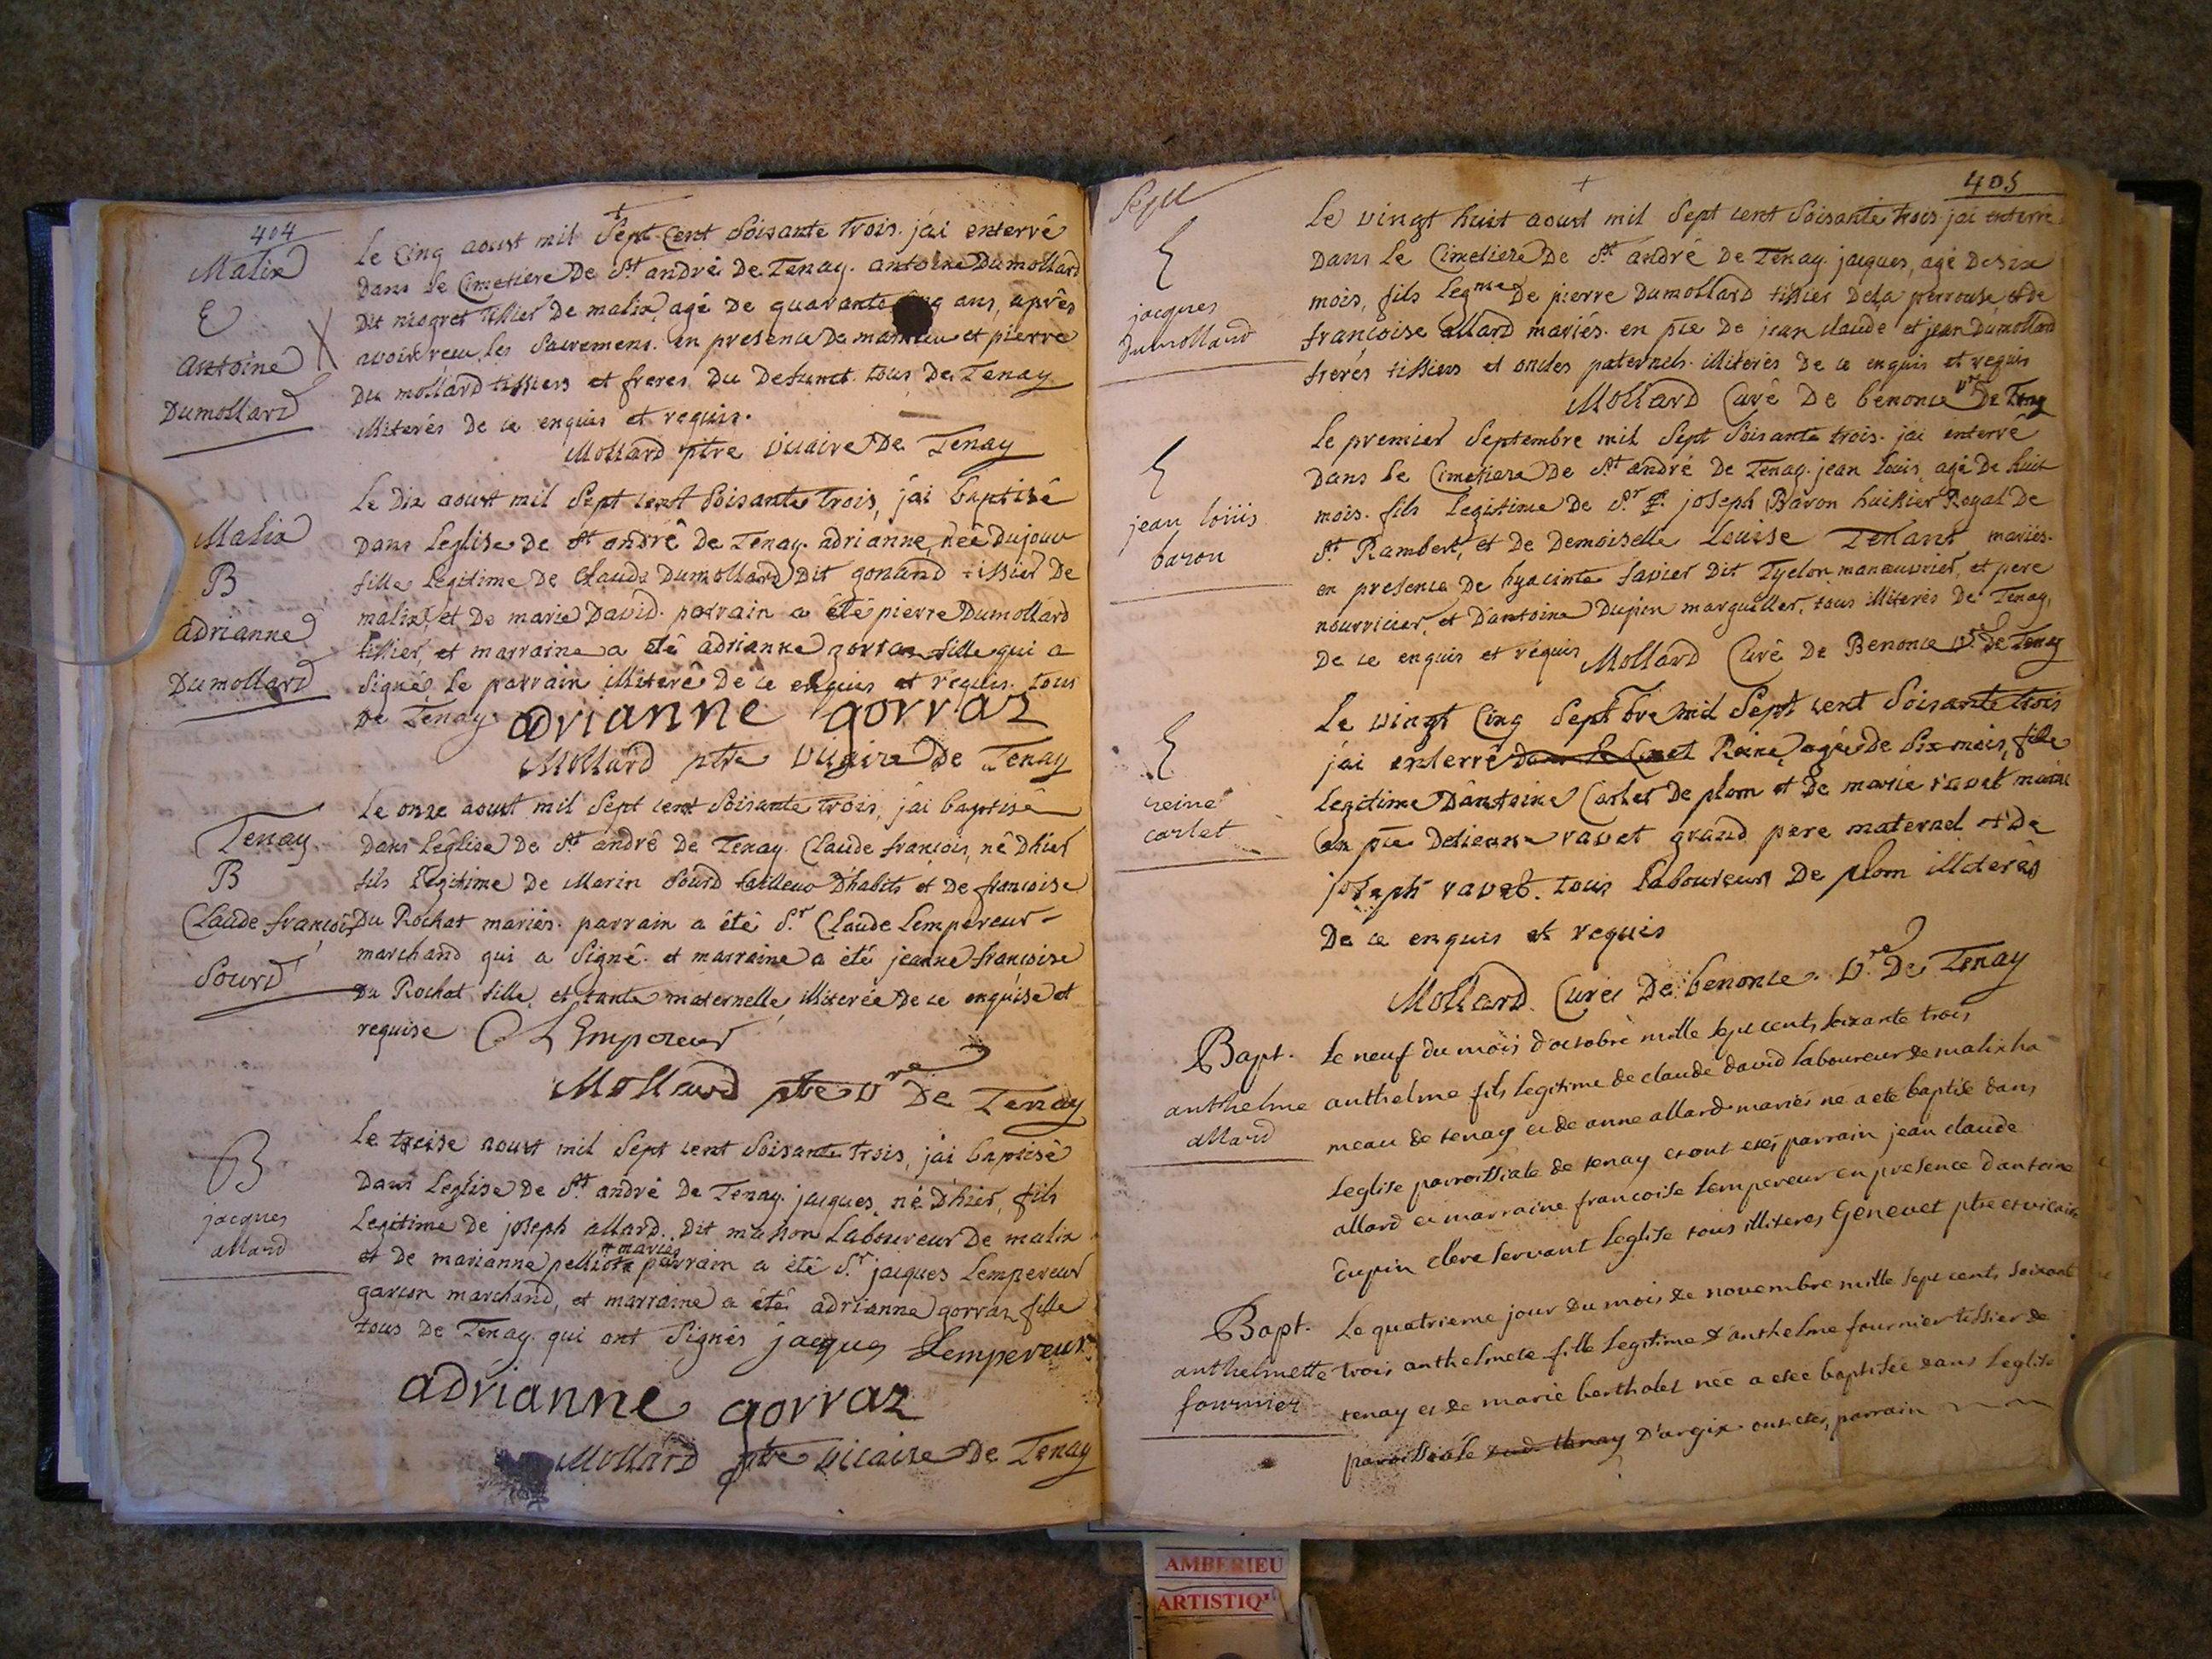 404
Malix
E
antoine
Dumollard
Le Cinq aoust mil Sept Cent Soisante trois. jai enterré
Dans Le Cimetiere De St andré De Tenay. antoine Dumollard
Dit niogret tissier De malix, agé De quarante ans, après
avoir reçu Les Sacremens. en presence De et pierre
Du mollard tissiers et freres Du Defunct. tous De Tenay
illiterés De ce enquis et requis.
Mollard ptre vicaire De Tenay
Malix
B
adrianne
Dumollard
Le Dix aoust mil Sept cent Soisante trois, j'ai baptisé
Dans Leglise De St andré De Tenay. adrianne, née Dujour
fille Legitime De Claude Dumollard Dit gonand tissier De
malix, et De marie David. parrain a été pierre Dumollard
tissier, et marraine a été adrianne gorraz fille qui a
Signé. Le parrain illiteré De ce enquis et requis. tous
De Tenay. adrianne gorraz
Mollard ptre vicaire De Tenay
Tenay.
B
Claude françois
Sourd
Le onze aoust mil Sept cent Soisante trois, j'ai baptisé
Dans Leglise De St andré De Tenay. Claude françois, né D'hier
fils Legitime De Marin Sourd tailleur D'habits et De françoise
Du Rochat mariés. parrain a été Sr. Claude Lempereur
marchand qui a Signé. et marraine a été jeanne françoise
Du Rochat fille, et tante maternelle, illiterée De ce enquise et
requise C L Empereur
Mollard ptre vre De Tenay
B
jacques
allard
Le treise aoust mil Sept cent Soisante trois, j'ai baptisé
Dans Leglise De St andré De Tenay. jacques, né D'hier, fils
Legitime De joseph allard. Dit mahon Laboureur De malix
et De marianne # mariés parrain a été Sr. jacques Lempereur
garcon marchand, et marraine a été adrianne gorraz fille
tous De Tenay. qui ont Signés jacques Lempereur
adrianne gorraz
Mollard ptre vicaire De Tenay
405
E
jacques
Dumollard
Le vingt huit aoust mil Sept cent Soisante trois. jai enterré
Dans Le Cimetiere De St andré De Tenay. jacques, agé De six
mois, fils Legme De pierre Dumollard tissier Dela perrouse et de
françoise allard mariés. en pce De jean claude et jean Dumollard
freres tissiers et oncles paternels. illiterés De ce enquis et requis
Mollard Curé De benonce vre De Tenay
E
jean louis
baron
Le premier Septembre mil Sept Soisante trois. jai enterré
Dans Le Cimetiere De St andré De Tenay. jean Louis, agé De huit
mois. fils Legitime De Sr joseph Baron huissier Royal De
St Rambert, et De Demoiselle Louise Tenant mariés.
en presence De hyacinte Savier Dit Tyelon, manoeuvrier, et pere
nourricier, et D'antoine Dupin marguiller, tous illiterés De Tenay,
De ce enquis et requis Mollard Curé De Benonce vre De Tenay
E
reine
carlet
Le vingt Cinq Septbre mil Sept cent Soisante trois
j'ai enterré dans Le Cimet Reine, agée De Six mois, fille
Legitime D'antoine Carlet De plom et De marie ravet mariés
en pce Detienne ravet grand pere maternel et De
joseph ravet. tous Laboureurs De plom illiterés
De ce enquis et requis
Mollard. Curé De benonce. vre De Tenay
Bapt.
anthelme
allard
Le neuf du mois d'octobre mille sept cents soixante trois
anthelme fils legitime de claude david laboureur de malix ha
meau de tenay et de anne allard mariés né a eté baptisé dans
Leglise parroissiale de tenay et ont etés parrain jean claude
allard et marraine francoise Lempereur en presence dantoine
dupin clerc servant Leglise tous illiteres Genevet ptre et vicaire
Bapt.
anthelmette
fournier
Le quatrieme jour du mois de novembre mille sept cents soixante
trois anthelmete fille legitime d'anthelme fournier tissier de
tenay et de marie bertholet née a etée baptisée dans Leglise
parroissiale tenay D'argix ont etes, parrain
AMBERIEU
ARTISTIQ